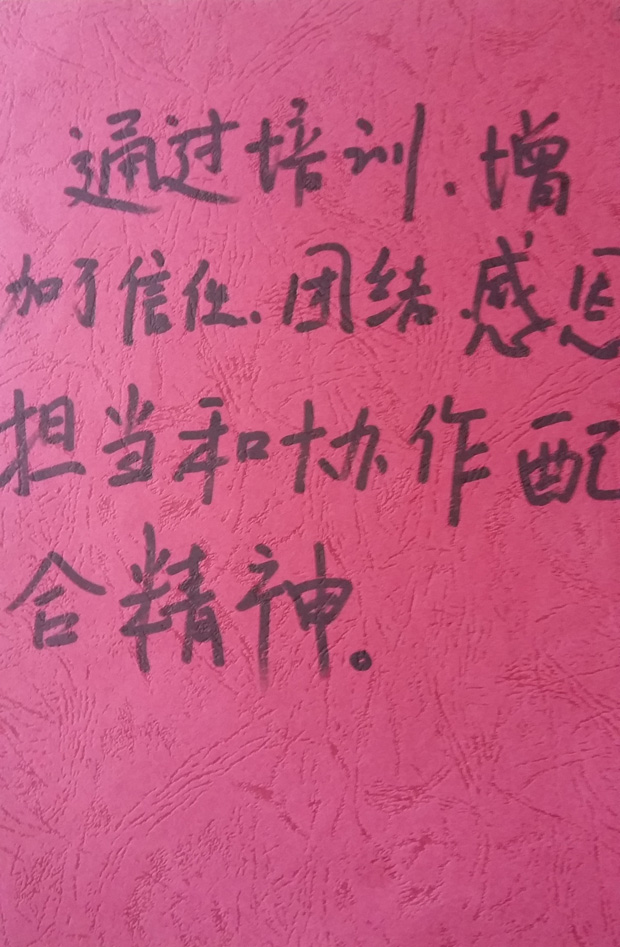 通过培训、增
加了信任、团结、感恩
担当和协作配
合精神。